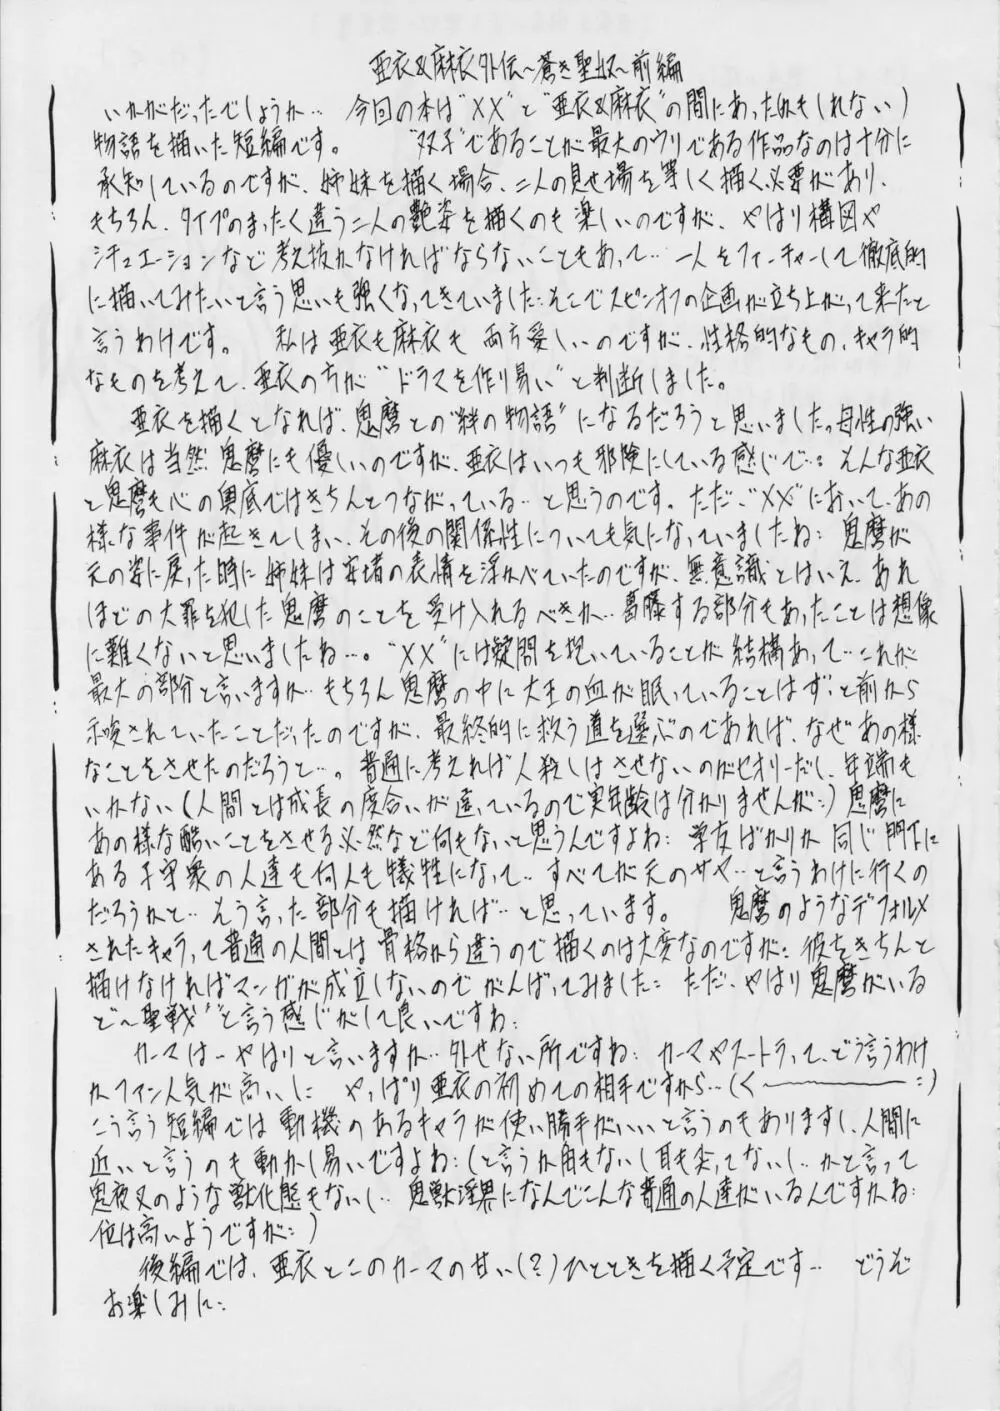 亜衣&麻衣外伝〜蒼き聖奴〜前編
いかがだったでしょうか… 今回の本は"XX"と"亜衣&麻衣"の間にあった(かもしれない)
物語を描いた短編です。 "双子"であることが最大のウリである作品なのは十分に
承知しているのですが、姉妹を描く場合、二人の見せ場を等しく描く必要があり、
もちろん、タイプのまったく違う二人の艶姿を描くのも楽しいのですが、やはり構図や
シチュエーションなど考え抜かなければならないこともあって… 一人をフィーチャーして徹底的
に描いてみたいと言う思いも強くなってきていました…そこでスピンオフの企画が立ち上がって来たと
言うわけです。 私は亜衣も麻衣も両方愛しいのですが、性格的なもの、キャラ的
なものを考えて、亜衣の方が"ドラマを作り易い"と判断しました。
亜衣を描くとなれば、鬼麿との"絆の物語"になるだろうと思いました。母性の強い
麻衣は当然鬼麿にも優しいのですが、亜衣はいつも邪険にしている感じで…そんな亜衣
と鬼麿も心の奥底ではきちんとつながっている…と思うのです。ただ…"XX"において、あの
様な事件が起きてしまい、その後の関係性についても気になっていましたね… 鬼麿が
元の姿に戻った時に姉妹は安堵の表情を浮かべていたのですが、無意識とはいえ、あれ
ほどの大罪を犯した鬼麿のことを受け入れるべきか…葛藤する部分もあったことは想像
に難くないと思いましたね…。"XX"には疑問を抱いていることが結構あって…これが
最大の部分と言いますか… もちろん鬼麿の中に大王の血が眠っていることはずっと前から
示唆されていたことだったのですが、最終的に救う道を選ぶのであれば、なぜあの様
なことをさせたのだろうと…。普通に考えれば人殺しはさせないのがセオリーだし、年端も
いかない(人間とは成長の度合いが違っているので実年齢は分かりませんが…)鬼麿に
あの様な酷いことをさせる必然など何もないと思うんですよね… 学友ばかりか同じ門下に
ある子守衆の人達も何人も犠牲になって… すべてが元のサヤ…と言うわけに行くの
だろうかと… そう言った部分も描ければ…と思っています。 鬼麿のようなデフォルメ
されたキャラって普通の人間とは骨格から違うので描くのは大変なのですが…彼をきちんと
描けなければマンガが成立しないのでがんばってみました… ただ、やはり鬼麿がいる
と"〜聖戦"と言う感じがして良いですね…
カーマは…やはりと言いますか…外せない所ですね… カーマやスートラって、どう言うわけ
かファン人気が高いし… やっぱり亜衣の初めての相手ですから…(く〜…)
こう言う短編では動機のあるキャラが使い勝手がいいと言うのもありますし、人間に
近いと言うのも動かし易いですよね…(と言うか角もないし耳も尖ってないし… かと言って
鬼夜叉のような獣化態もないし… 鬼獣淫界になんでこんな普通の人達がいるんですかね…
位は高いようですが…)
後編では、亜衣とこのカーマの甘い(?)ひとときを描く予定です… どうぞ
お楽しみに…